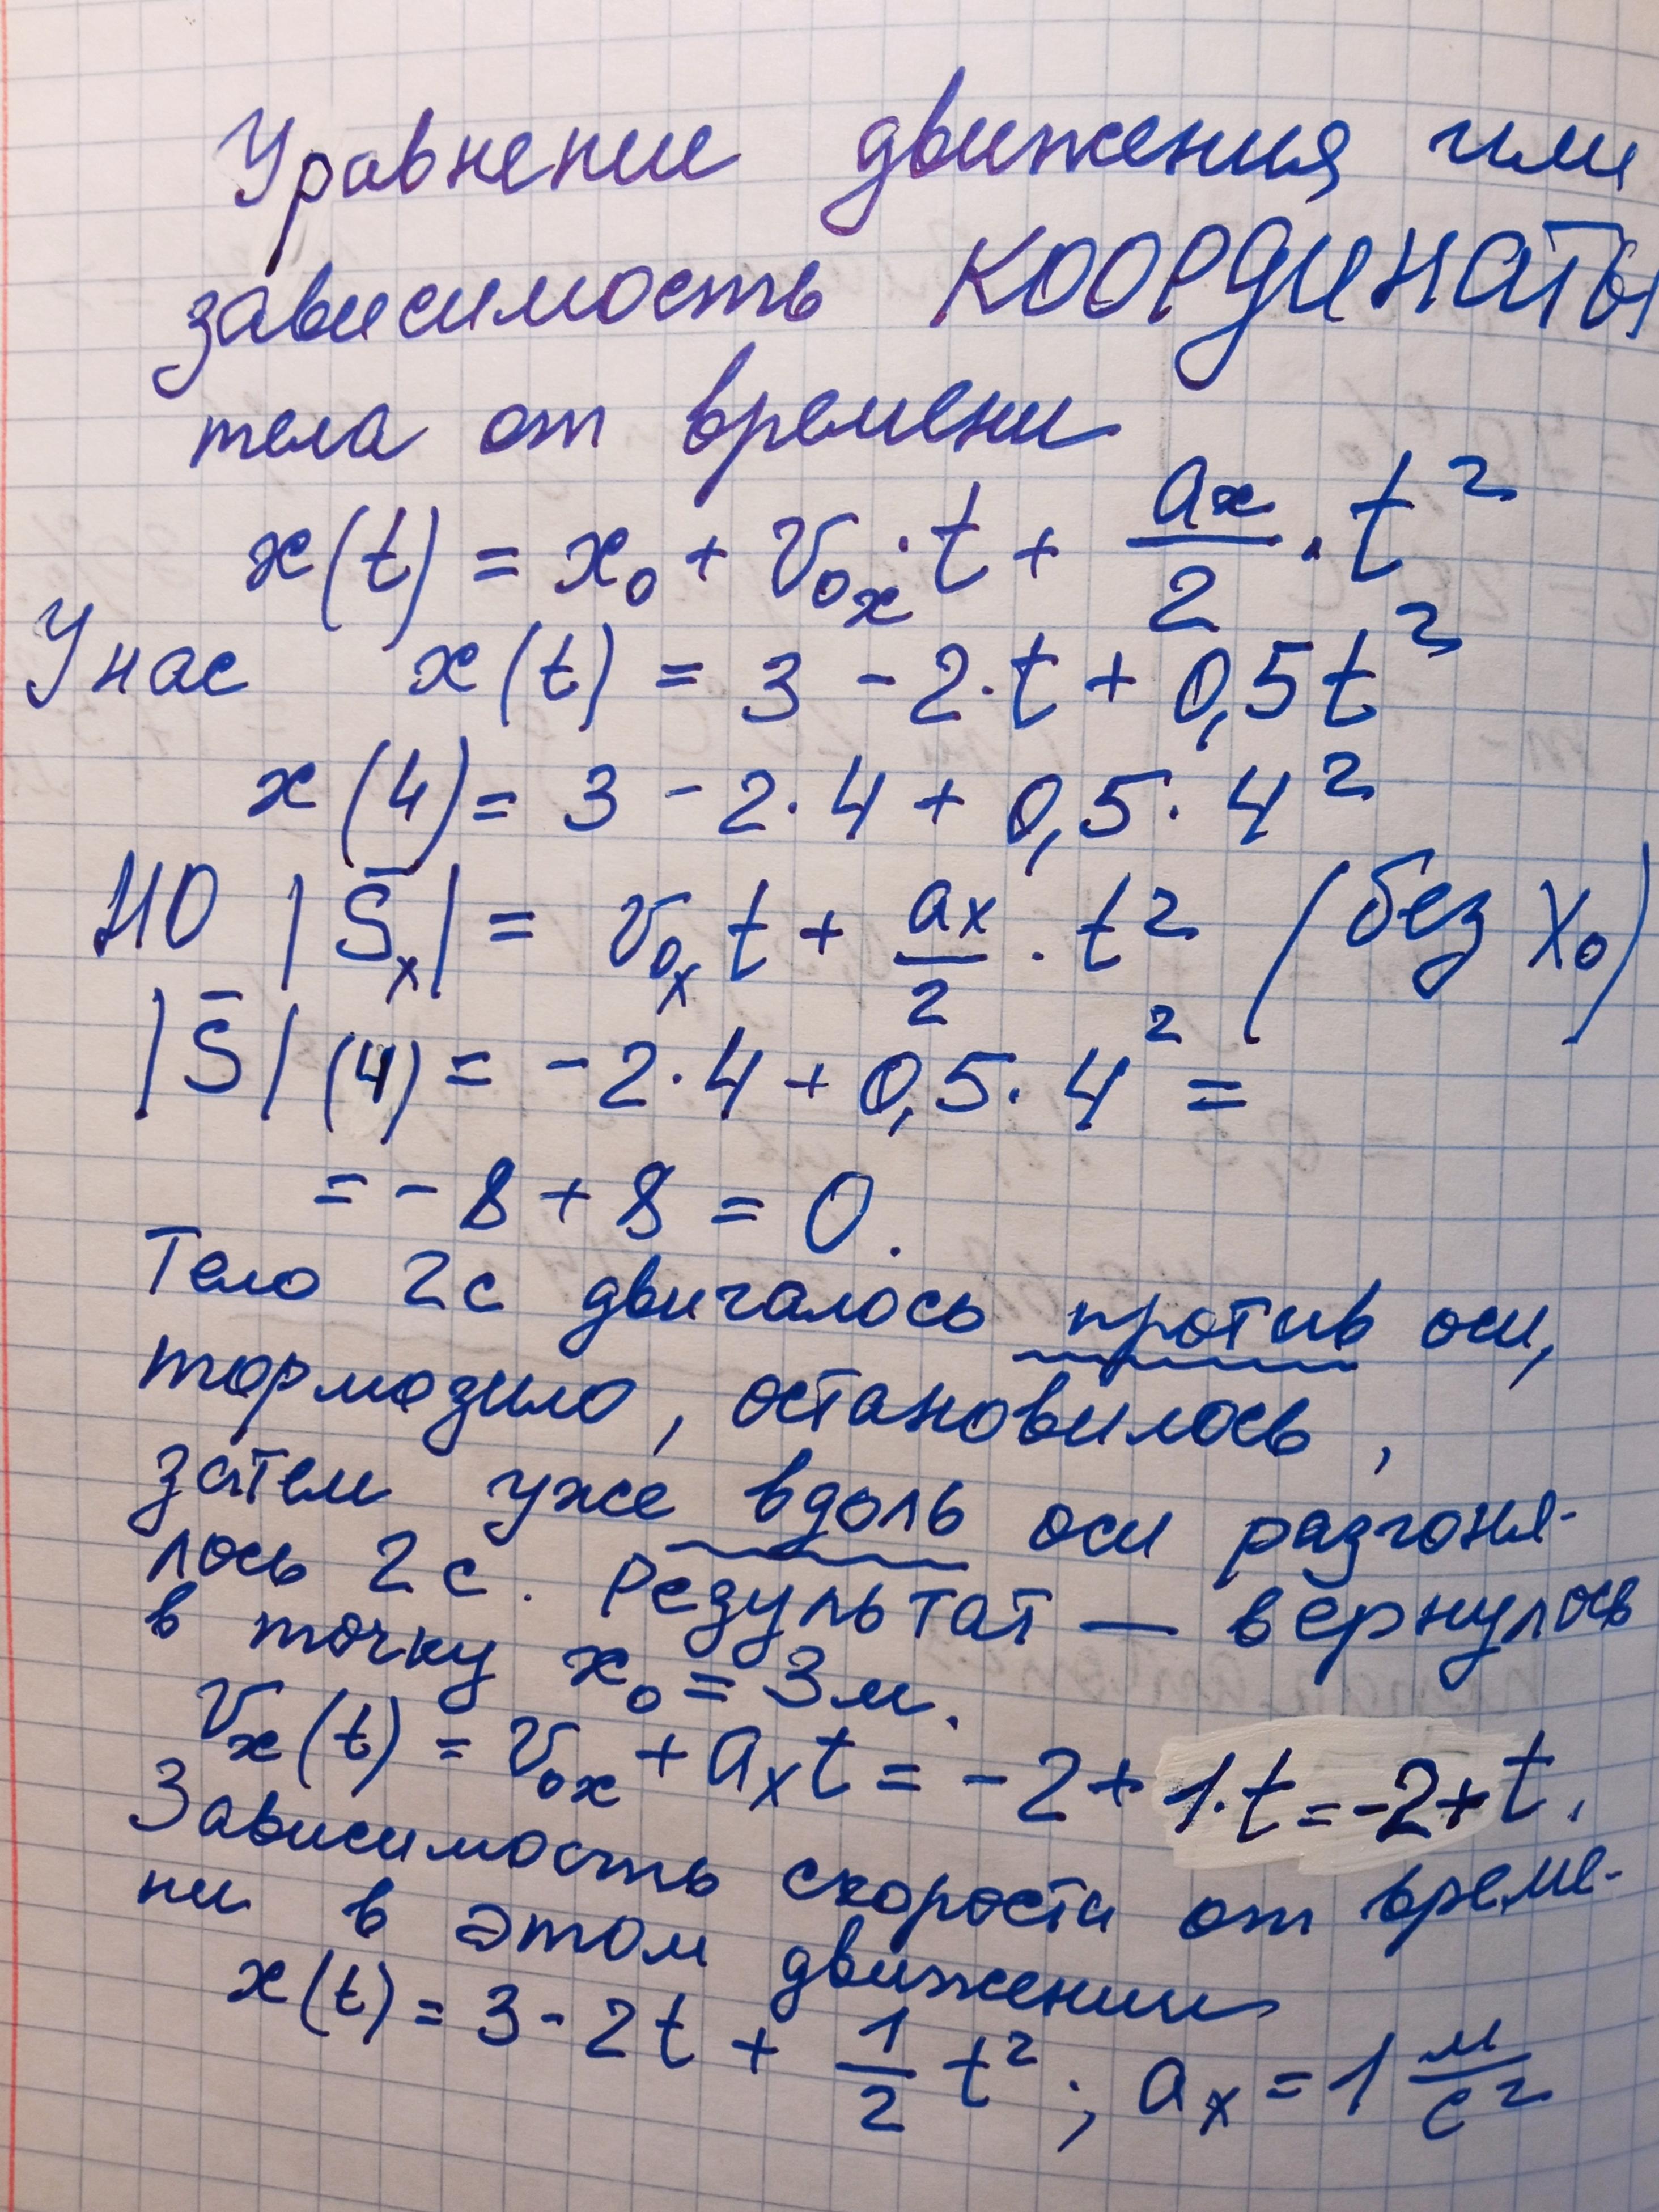 Уравнение движения или
зависимость КООРДИНАТЫ
тела от времени
x(t) = x₀ + v₀ₓ·t + aₓ/2 · t²
У нас x(t) = 3 - 2·t + 0,5t²
x(4) = 3 - 2·4 + 0,5·4²
НО |S̄ₓ| = v₀ₓt + aₓ/2 · t² (без x₀)
|S̄|(4) = -2·4 + 0,5·4² =
= -8 + 8 = 0.
Тело 2с двигалось против оси,
тормозило, остановилось,
затем уже вдоль оси разгоня-
лось 2с. Результат — вернулось
в точку x₀ = 3м.
vₓ(t) = v₀ₓ + aₓt = -2 + 1·t = -2 + t.
Зависимость скорости от време-
ни в этом движении
x(t) = 3 - 2t + 1/2 t²; aₓ = 1 м/с²